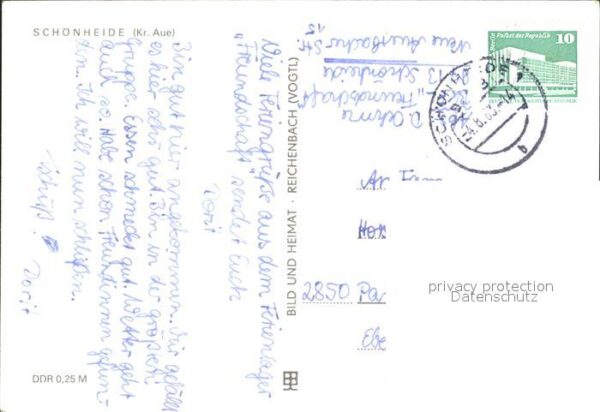 SCHÖNHEIDE (Kr. Aue)
Bin gut hier angekommen. Mir gefällt
es hier sehr gut. Bin in der größten
Gruppe. Essen schmeckt gut. Wetter geht
auch so. Habe schon Freundinnen gefun-
den. Ich will nun schließen.
Tschüß!
Dorit
Viele Feriengrüße aus dem Ferienlager
"Freundschaft" sendet Euch
Dorit
DDR 0,25 M
BILD UND HEIMAT · REICHENBACH (VOGTL)
D. Oehme
"Freundschaft"
Schönheide
Neue Auerbacher Str.
15
Palast der Republik
10
DDR
SCHÖNHEIDE
2850 Pa
privacy protection
Datenschutz